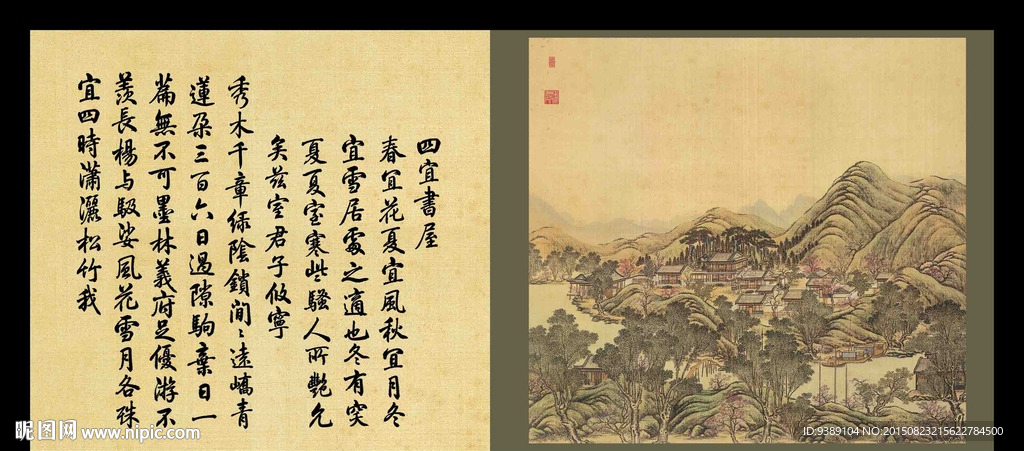 四宜書屋
春宜花夏宜風秋宜月冬
宜雪居處之適也冬有突
夏夏室寒些騷人所艷允
矣茲室君子攸寧
秀木千章綠陰鎖間〻遠嶠青
蓮朶三百六日過隙駒棄日一
篇無不可墨林義府足優游不
羨長楊与馺娑風花雪月各殊
宜四時瀟灑松竹我
昵图网 www.nipic.com
ID:9389104 NO:20150823215622784500